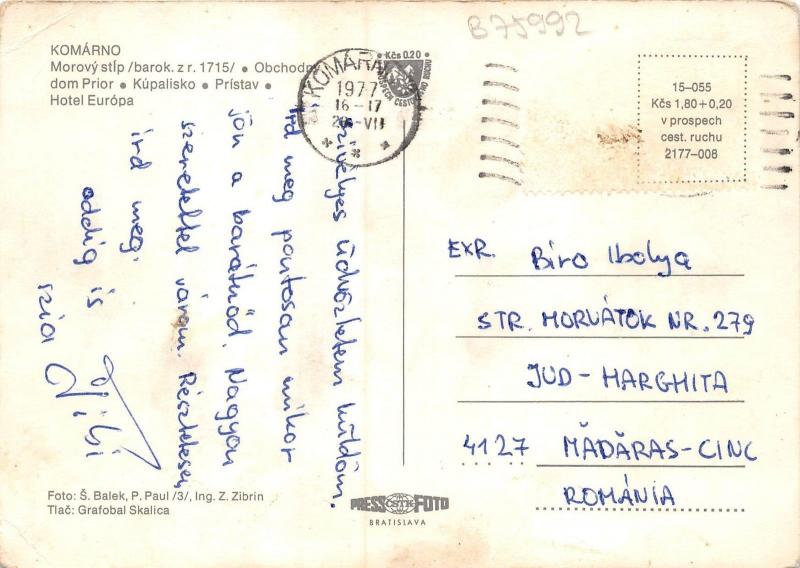 B75992
KOMÁRNO
Morový stĺp /barok. z r. 1715/ • Obchodný
dom Prior • Kúpalisko • Prístav •
Hotel Európa
KOMÁRNO
1977
16-17
-VII
Kčs 0.20
V PROSPECH CESTOVNÉHO RUCHU
15-055
Kčs 1,80+0,20
v prospech
cest. ruchu
2177-006
szívélyes üdvözletem küldöm.
Írd meg pontosan mikor
jön a barátnőd. Nagyon
szeretettel várom. Részletesen
írd meg.
addig is
szia
Tibi
EXP. Biro Ibolya
STR. MORVÁTOK NR. 279
JUD-HARGHITA
4127 MĂDĂRAS-CINC
ROMÁNIA
Foto: Š. Balek, P. Paul /3/, Ing. Z. Zibrin
Tlač: Grafobal Skalica
PRESS ČSTK FOTO
BRATISLAVA